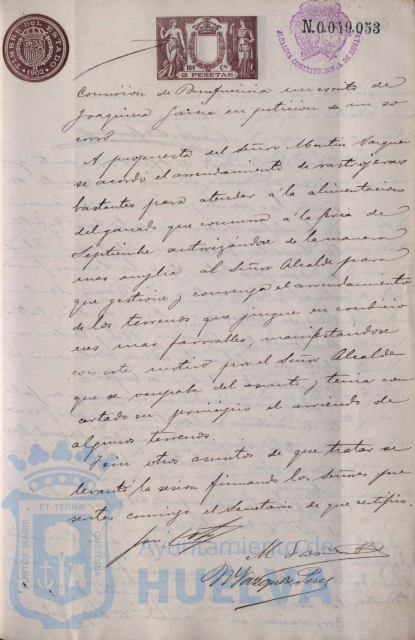 TIMBRE DEL ESTADO
1902
2 PESETAS
N.0.019.053
ALCALDIA CONSTITUCIONAL DE HUELVA
Comision de Beneficencia un escrito de
Joaquina Garcia en peticion de un so
corro
A propuesta del Señor Martin Vazquez
se acordó el arrendamiento de rastrojeras
bastantes para atender á la alimentacion
del ganado que concurra á la feria de
Septiembre autorizándose de la manera
mas amplia al Señor Alcalde para
que gestione y convenga el arrendamiento
de los terrenos que juzgue en condicio
nes mas favorables, manifestandose
con este motivo por el Señor Alcalde
que se ocupaba del asunto y tenia con
certado en principio el arriendo de
algunos terrenos.
Y sin otros asuntos de que tratar se
levantó la sesion firmando los Señores pre
sentes conmigo el Secretario de que certifico.
M. Vazquez Perez
PORTUS MARIS ET TERRÆ CUSTODIA
Ayuntamiento de
HUELVA